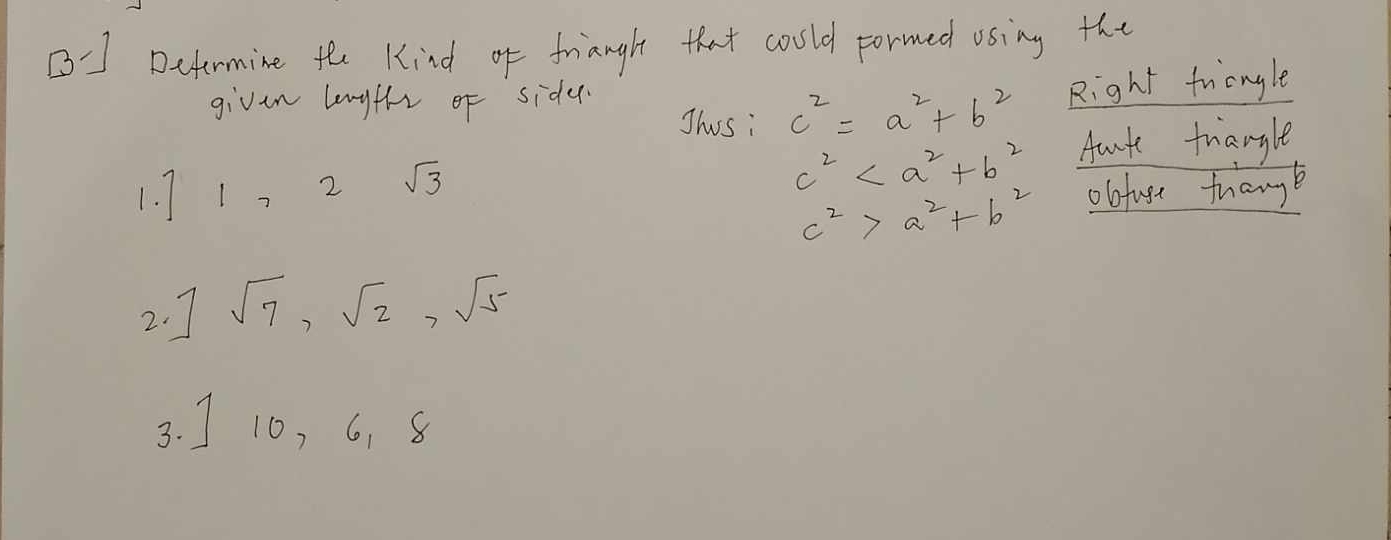 B-] Determine the Kind of triangle that could formed using the
given lengths of sides.
Thus: c² = a² + b² Right triangle
c² < a² + b² Acute triangle
c² > a² + b² obtuse triangle
1.] 1, 2 √3
2.] √7, √2, √5
3.] 10, 6, 8